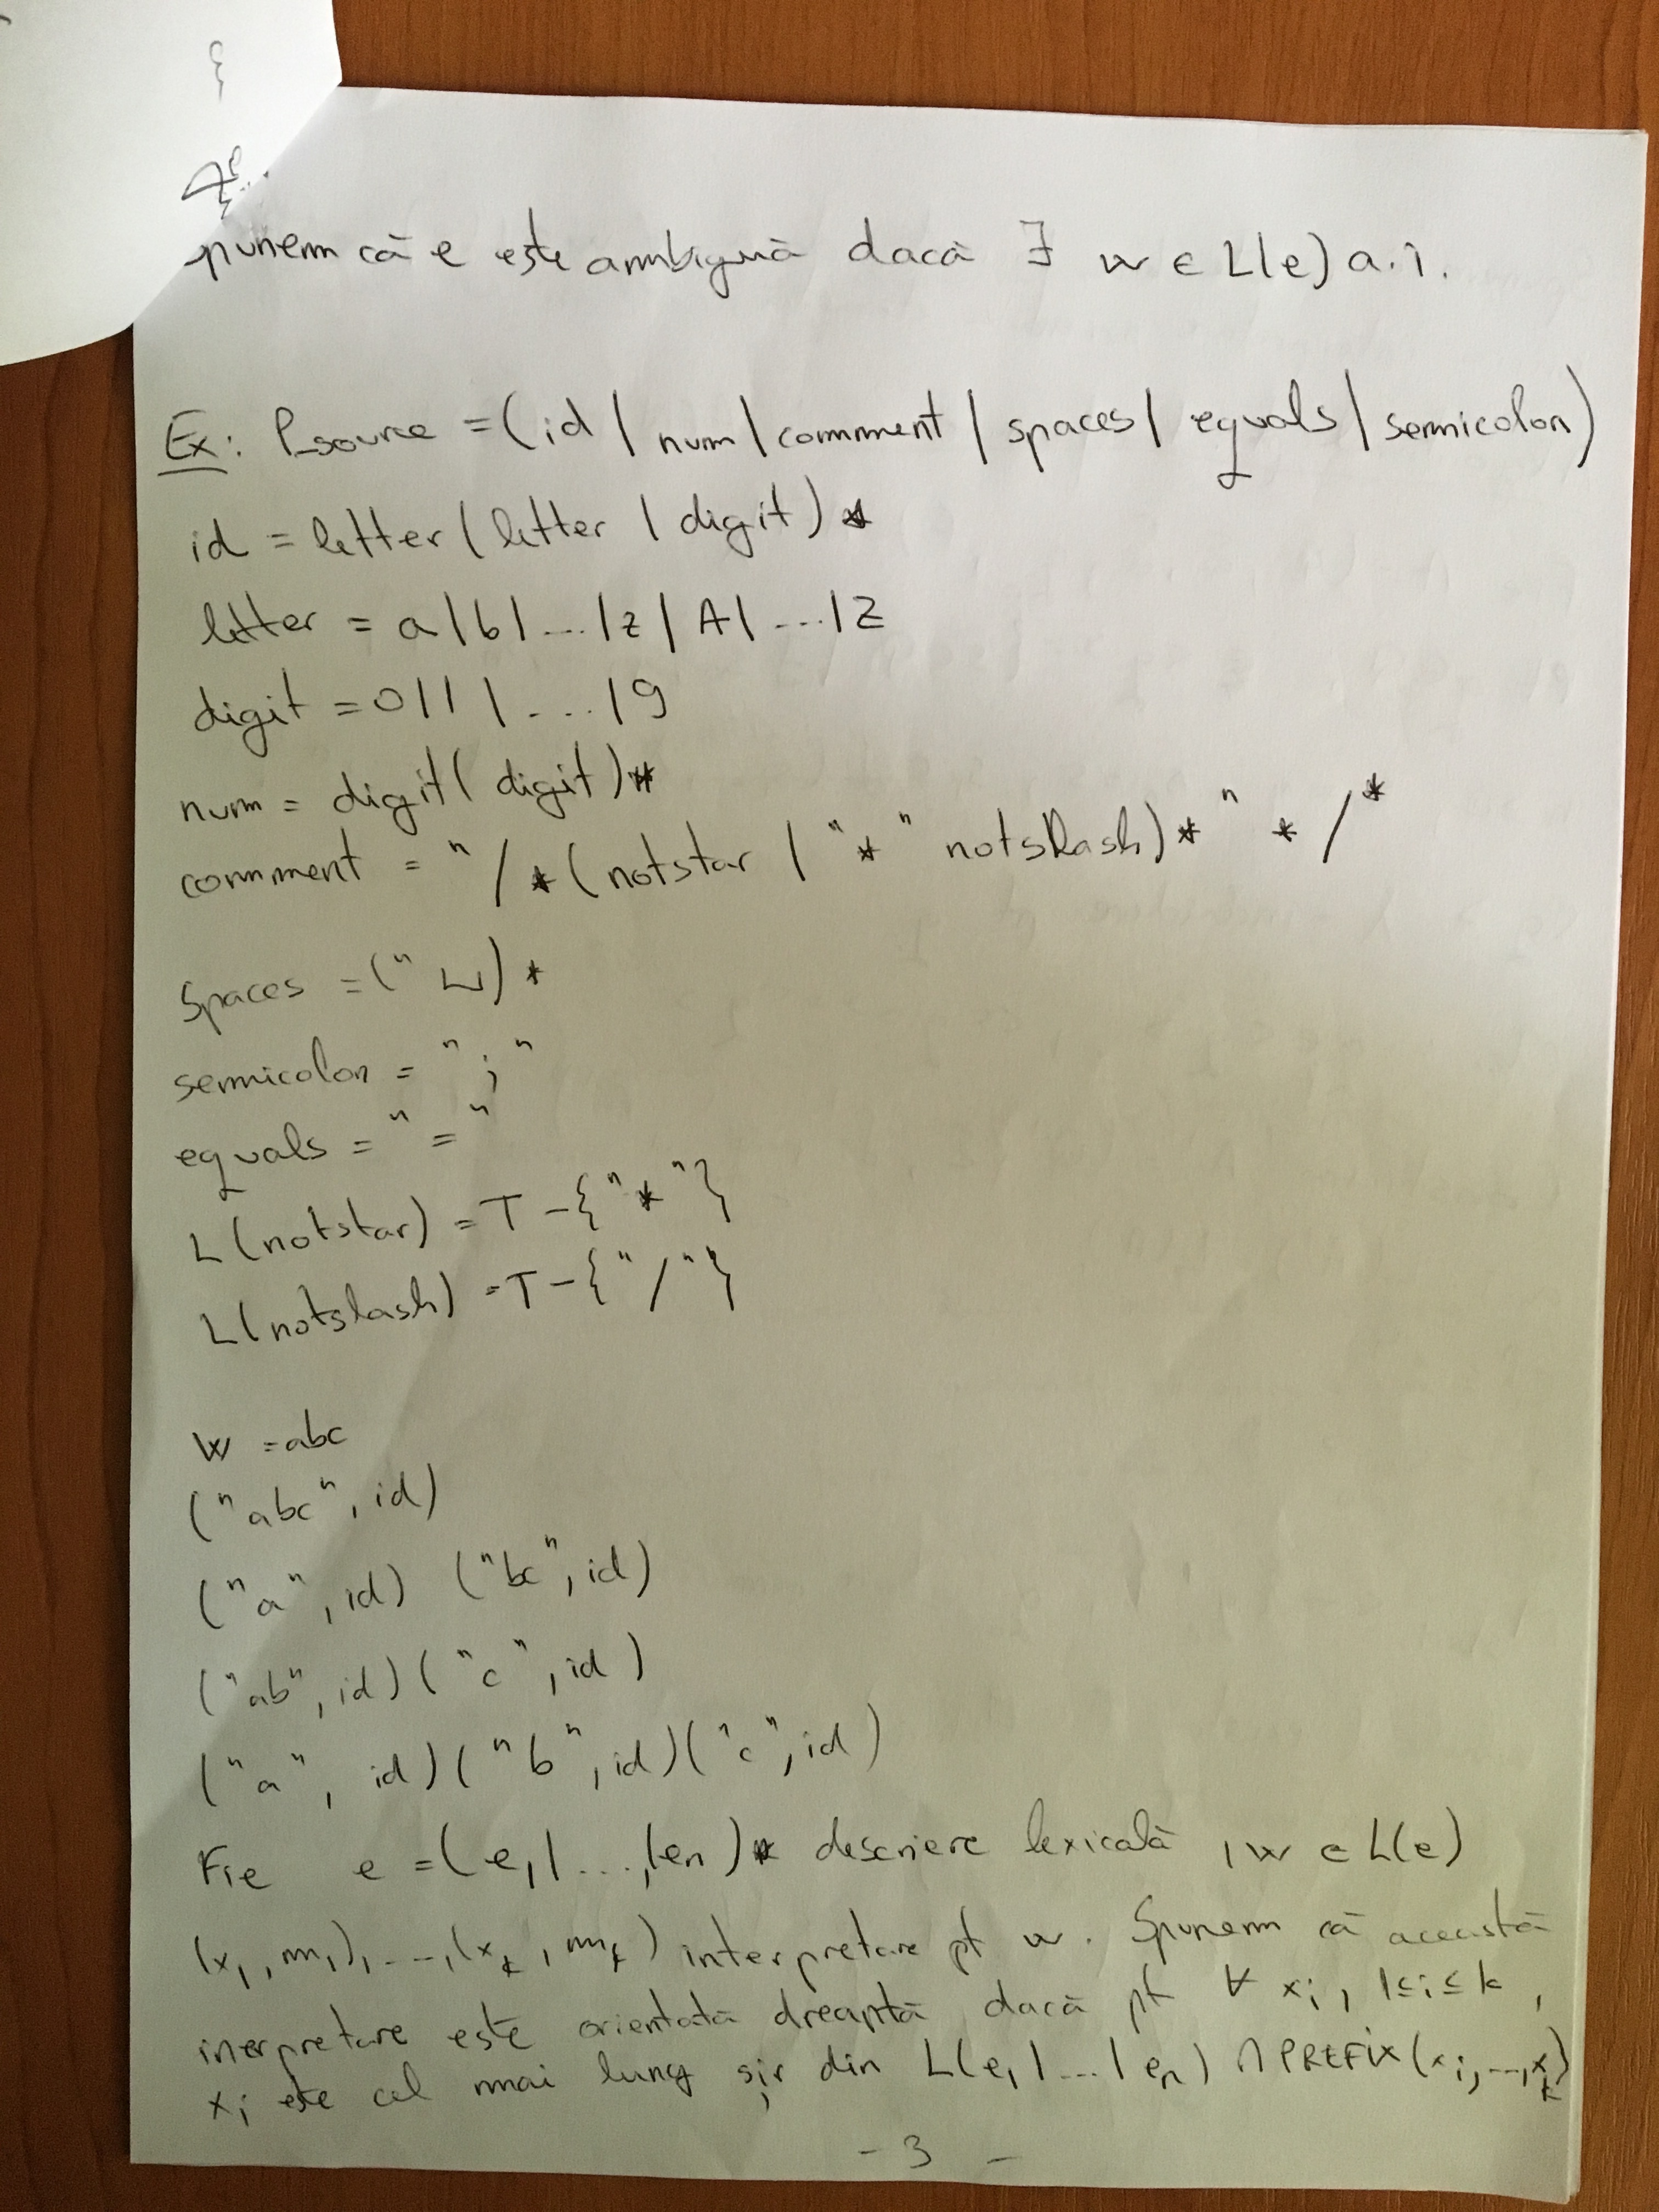 punem că e este ambiguă dacă ∃ w ∈ L(e) a.î.
Ex: P_source = (id | num | comment | spaces | equals | semicolon)
id = letter (letter | digit) *
letter = a | b | ... | z | A | ... | Z
digit = 0 | 1 | ... | 9
num = digit (digit) *
comment = " / * (notstar | "*" notslash) * " * / *
Spaces = (" ⊔) *
semicolon = " ; "
equals = " = "
L (notstar) = T - { " * " }
L (notslash) = T - { " / " }
w = abc
("abc", id)
("a", id) ("bc", id)
("ab", id) ("c", id)
("a", id) ("b", id) ("c", id)
Fie e = (e₁ | ..., | eₙ) * descriere lexicală , w ∈ L(e)
(x₁, m₁), ..., (xₖ, mₖ) interpretare pt w. Spunem că această
inerpretare este orientată dreaptă dacă pt ∀ xᵢ, 1 ≤ i ≤ k,
xᵢ este cel mai lung șir din L(e₁ | ... | eₙ) ∩ PREFIX (xᵢ, ..., xₖ)
- 3 -